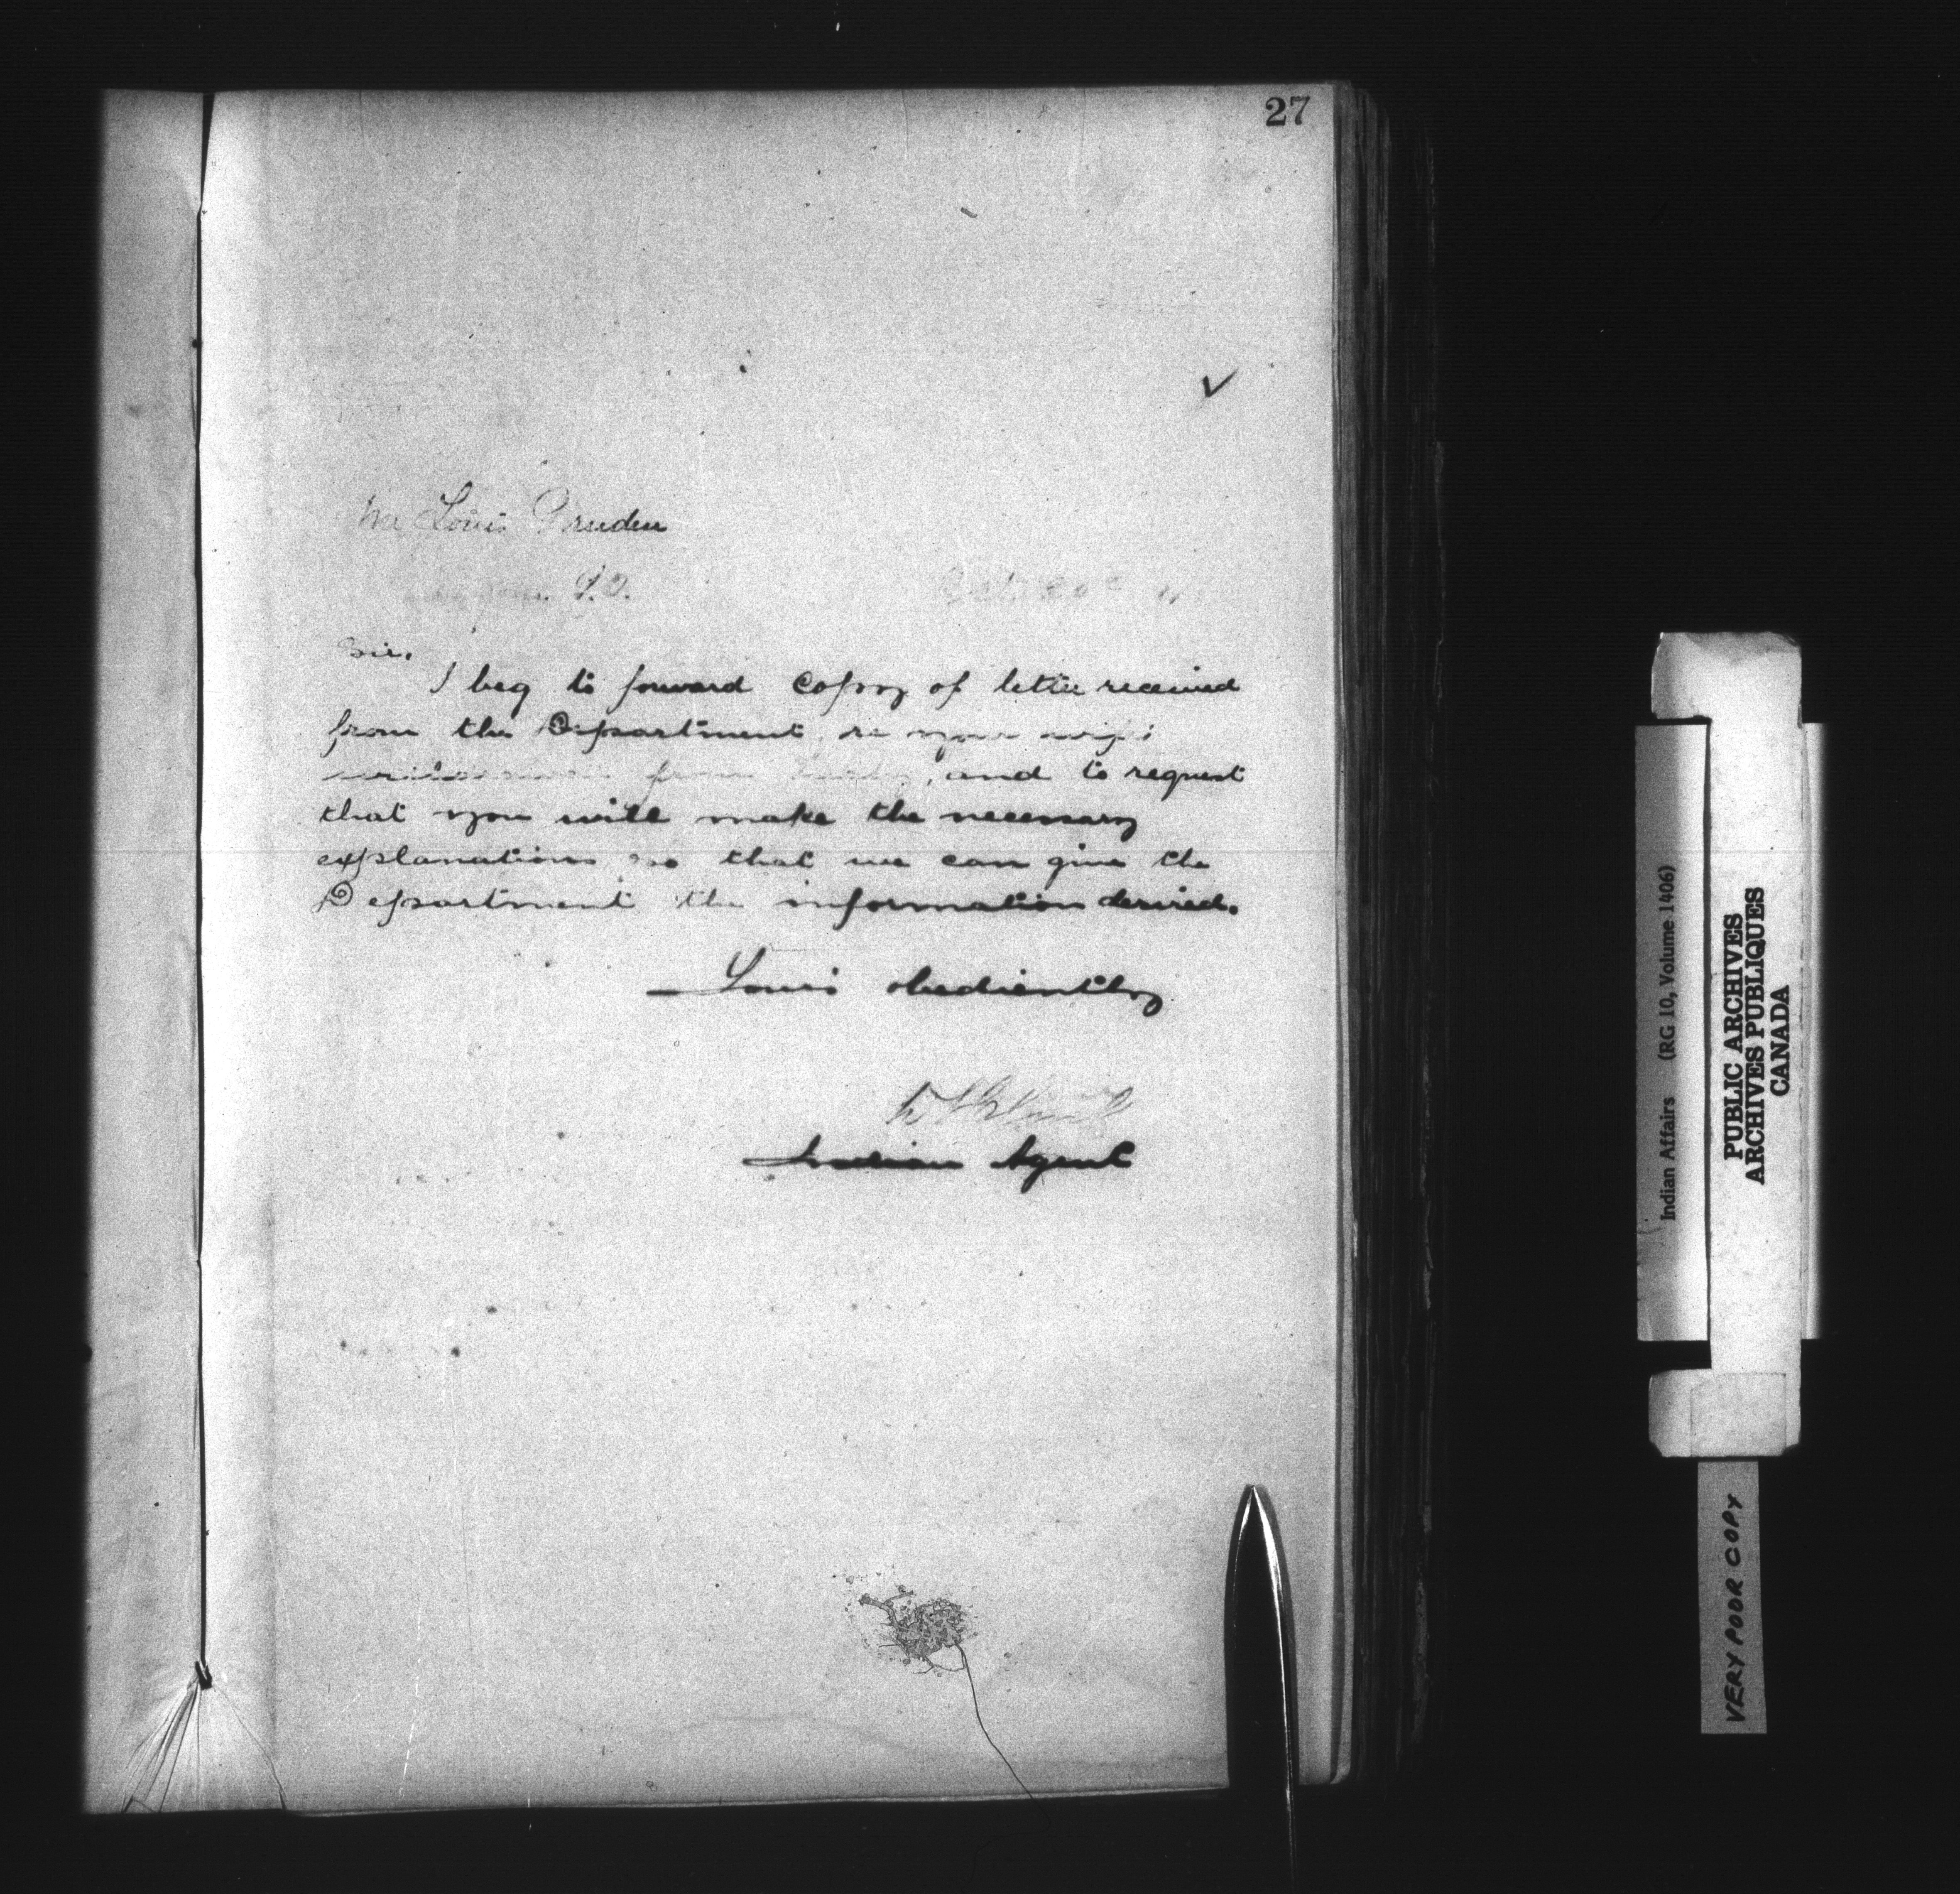 27
Mr Louis Pruden
P.O.
Sir.
I beg to forward copy of letter received
from the Department, re your wife's
from and to request
that you will make the necessary
explanation so that we can give the
Department the information desired.
Yours obediently
Indian Agent
Indian Affairs (RG 10, Volume 1406)
PUBLIC ARCHIVES
ARCHIVES PUBLIQUES
CANADA
VERY POOR COPY